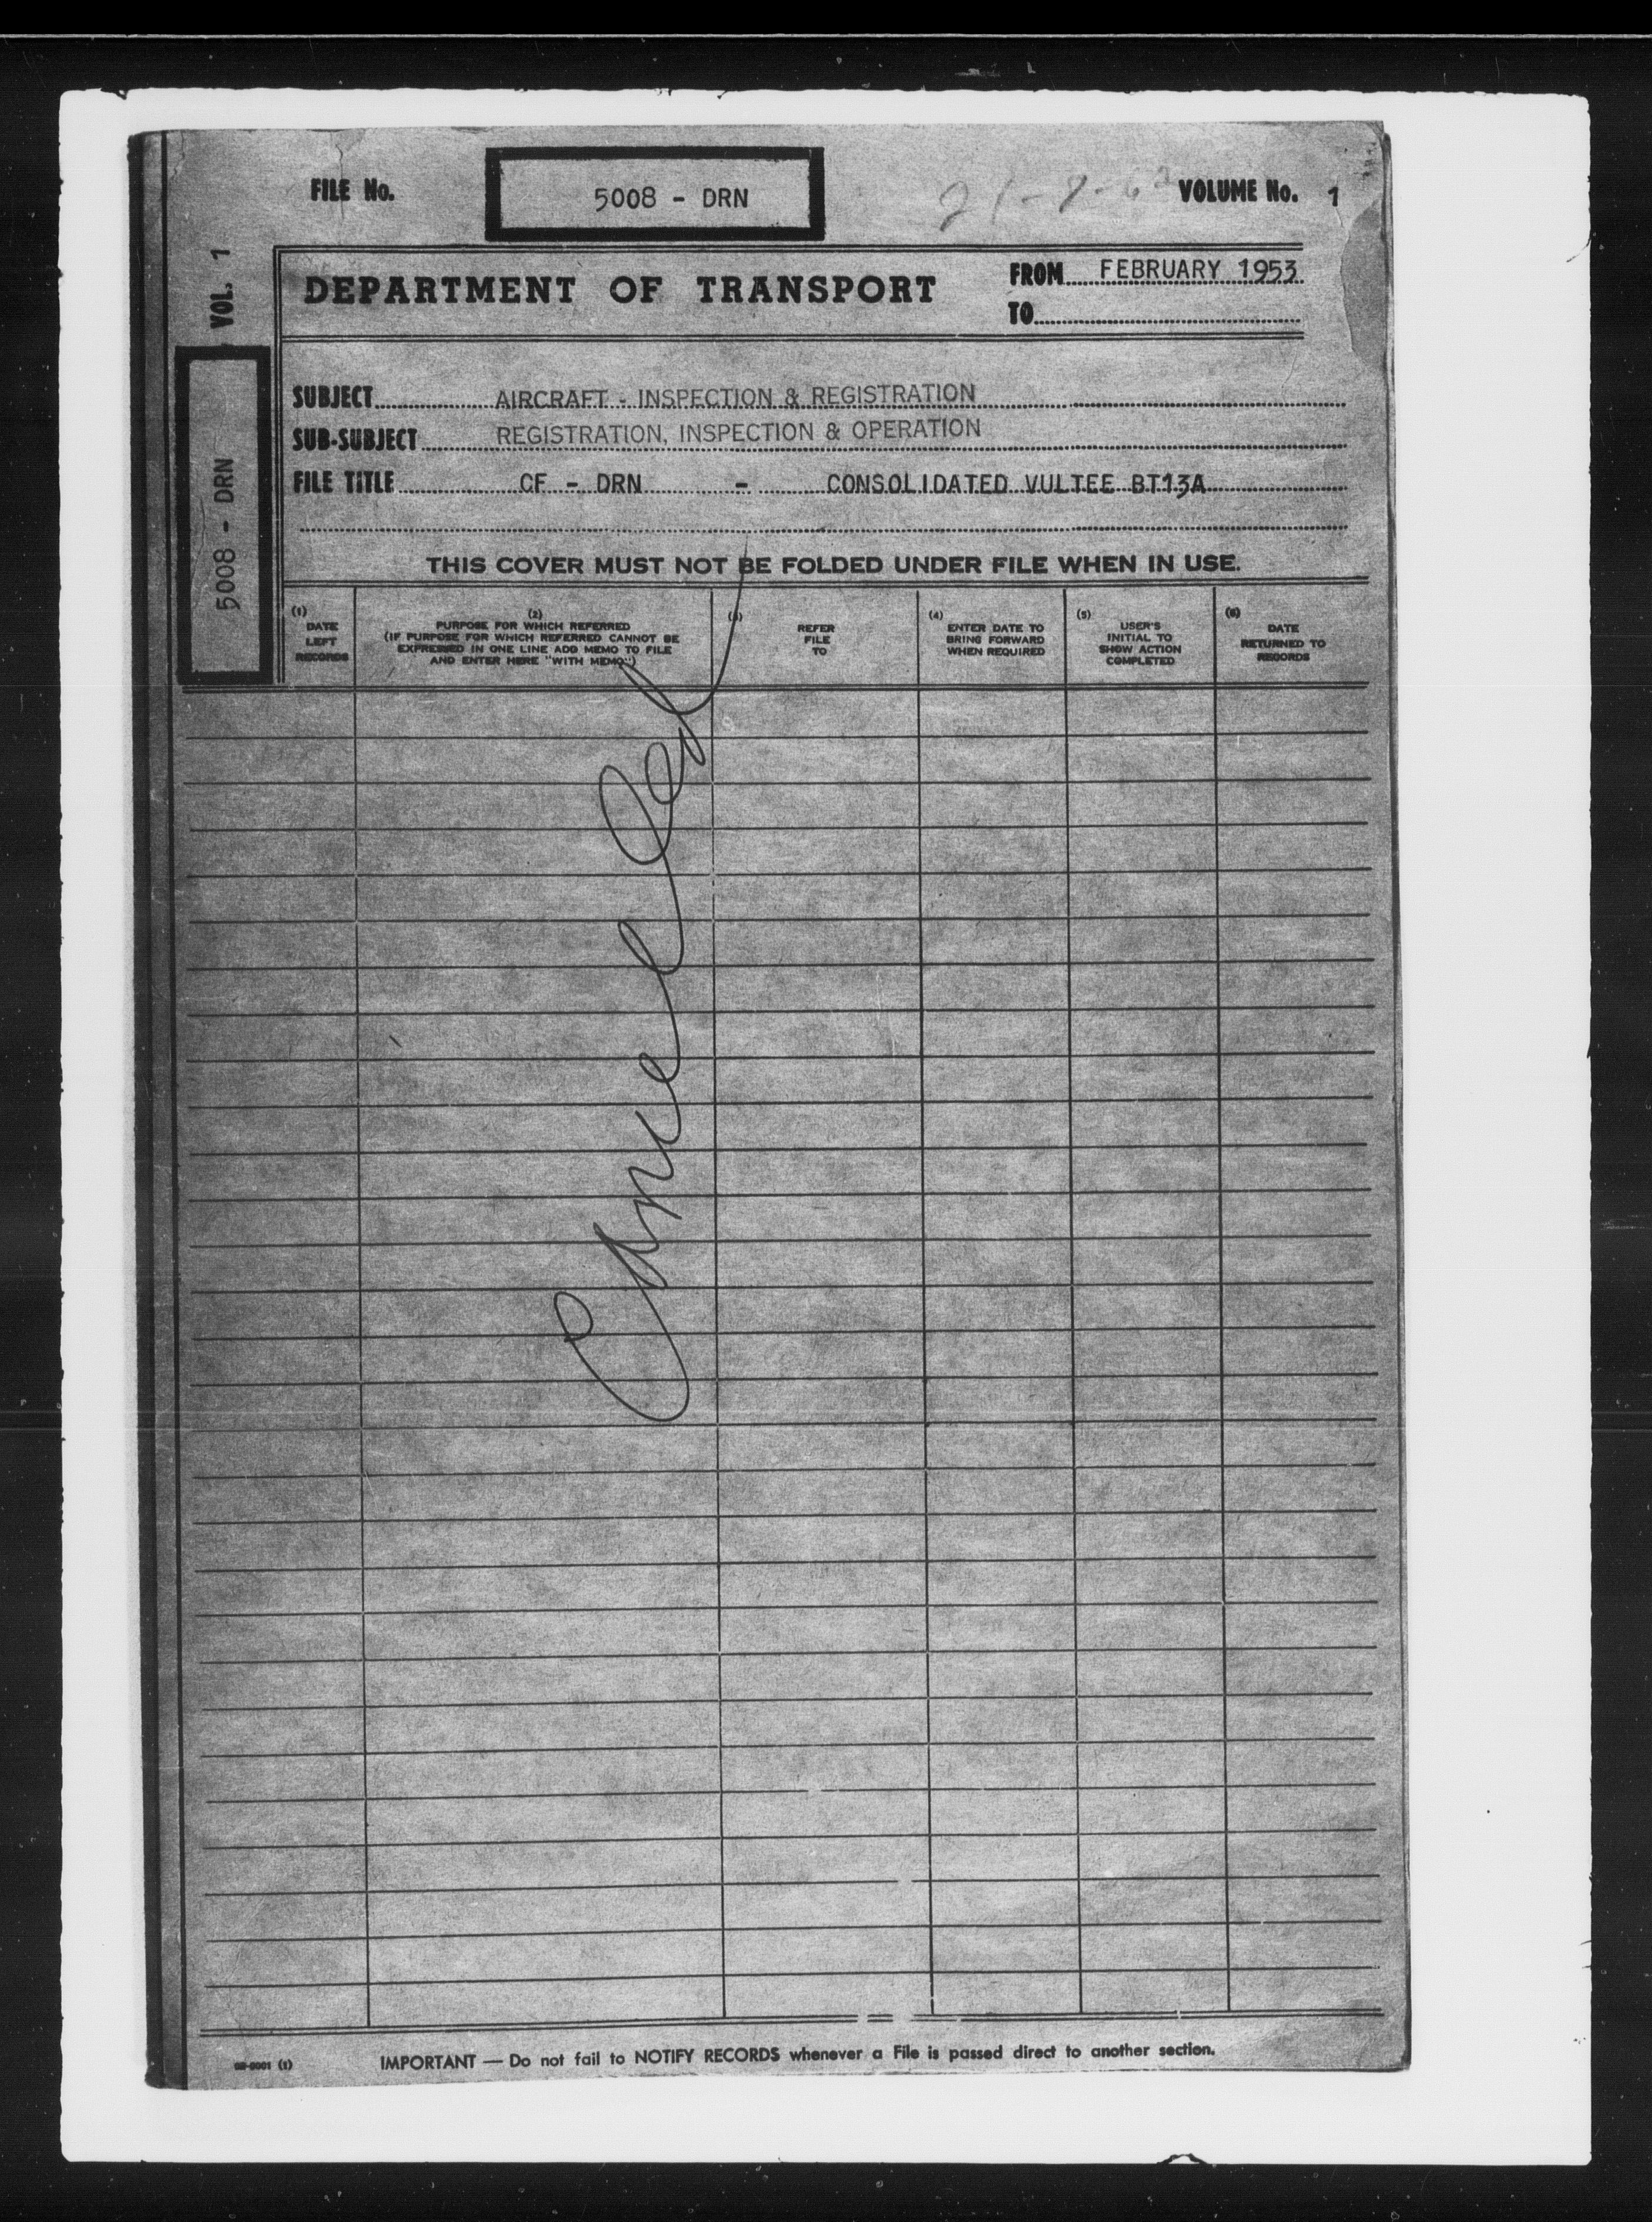 FILE No. 5008 - DRN VOLUME No. 1
VOL. 1
5008 - DRN
DEPARTMENT OF TRANSPORT
FROM FEBRUARY 1953
TO
SUBJECT AIRCRAFT - INSPECTION & REGISTRATION
SUB-SUBJECT REGISTRATION, INSPECTION & OPERATION
FILE TITLE CF - DRN - CONSOLIDATED VULTEE BT13A
THIS COVER MUST NOT BE FOLDED UNDER FILE WHEN IN USE.
(1)
DATE
LEFT
RECORDS
(2)
PURPOSE FOR WHICH REFERRED
(IF PURPOSE FOR WHICH REFERRED CANNOT BE
EXPRESSED IN ONE LINE ADD MEMO TO FILE
AND ENTER HERE "WITH MEMO")
(3)
REFER
FILE
TO
(4)
ENTER DATE TO
BRING FORWARD
WHEN REQUIRED
(5)
USER'S
INITIAL TO
SHOW ACTION
COMPLETED
(6)
DATE
RETURNED TO
RECORDS
Cancelled
IMPORTANT — Do not fail to NOTIFY RECORDS whenever a File is passed direct to another section.